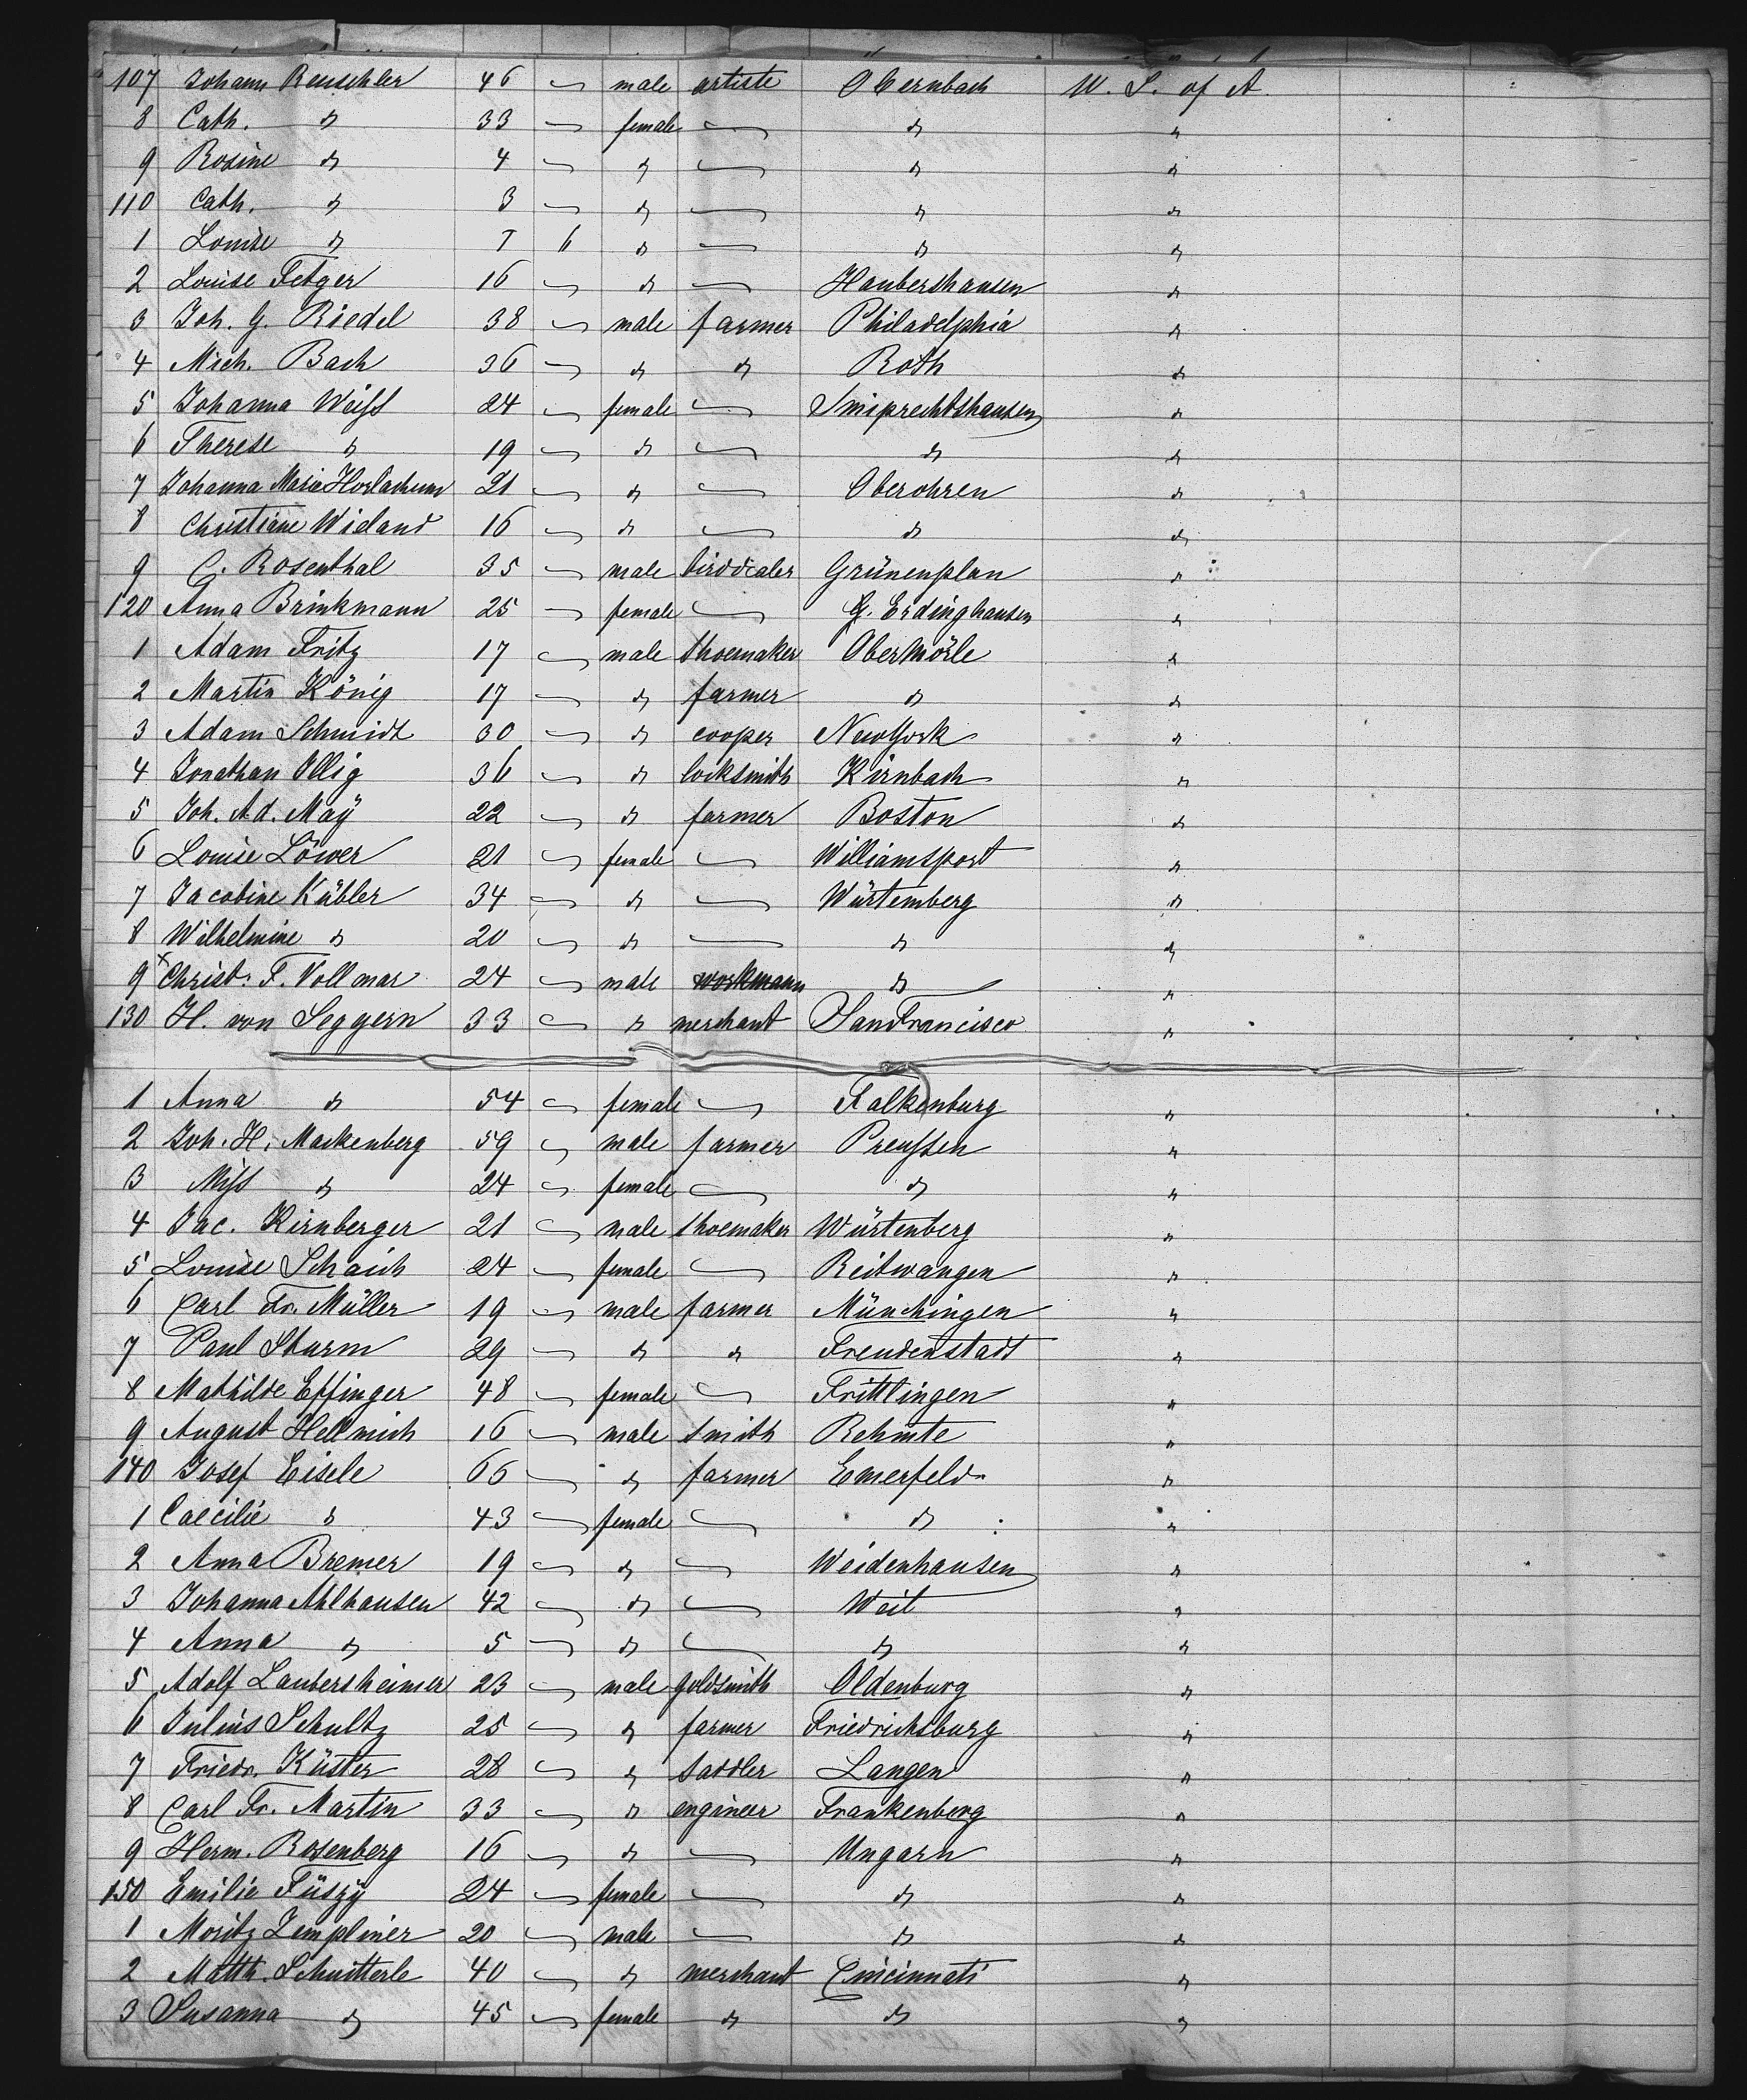 107 Johann Reuschler 46 — male artiste Obernbach U. S. of A.
8 Cath. " 33 — female — " "
9 Rosine " 4 — " — " "
110 Cath. " 3 — " — " "
1 Louise " 1 6 " — " "
2 Louise Fetzer 16 — " — Haubershausen "
3 Joh. G. Riedel 38 — male farmer Philadelphia "
4 Mich. Bach 36 — " " Roth "
5 Johanna Weiss 24 — female — "
6 Therese " 19 — " — " "
7 Johanna Marie 21 — " — Oberohren "
8 Christiane Wieland 16 — " — " "
9 C. Rosenthal 35 — male birddealer Grünenplan "
120 Anna Brinkmann 25 — female — G. Erdinghausen "
1 Adam Fritz 17 — male shoemaker Obermörle "
2 Martin König 17 — " farmer " "
3 Adam Schmidt 30 — " cooper New York "
4 Jonathan Illig 36 — " locksmith Kirnbach "
5 Joh. Ad. Maÿ 22 — " farmer Boston "
6 Louise Löwer 21 — female — Williamsport "
7 Jacobine Kübler 34 — " — Würtemberg "
8 Wilhelmine " 20 — " — " "
9 x Christ. F. Vollmar 24 — male workmann " "
130 H. von Seggern 33 — " merchant San Francisco "
1 Anna " 54 — female — Falkenburg "
2 Joh. H. Mackenberg 59 — male farmer Preussen "
3 Miss " 24 — female — " "
4 Jac. Kirnberger 21 — male shoemaker Würtenberg "
5 Louise Schaich 24 — female — Reitwangen "
6 Carl Fr. Müller 19 — male farmer Münchingen "
7 Paul Sturm 29 — " " Freudenstadt "
8 Mathilde Effinger 48 — female — Frittlingen "
9 August Hellmich 16 — male smith Rehmte "
140 Josef Eisele 66 — " farmer Emerfeld "
1 Caecilie " 43 — female — " "
2 Anna Bremer 19 — " — Weidenhausen "
3 Johanna Ahlhausen 42 — " — Weit "
4 Anna " 5 — " — " "
5 Adolf Laubersheimer 23 — male goldsmith Oldenburg "
6 Julius Schultz 25 — " farmer Friedrichsburg "
7 Friedr. Küster 28 — " saddler Langen "
8 Carl Fr. Martin 33 — " engineer Frankenberg "
9 Herm. Rosenberg 16 — " — Ungarn "
150 Emilie Füszÿ 24 — female — " "
1 Moritz Zempliner 20 — male — " "
2 Matth. Schnitterle 40 — " merchant Cincinnati "
3 Susanna " 45 — female " " "